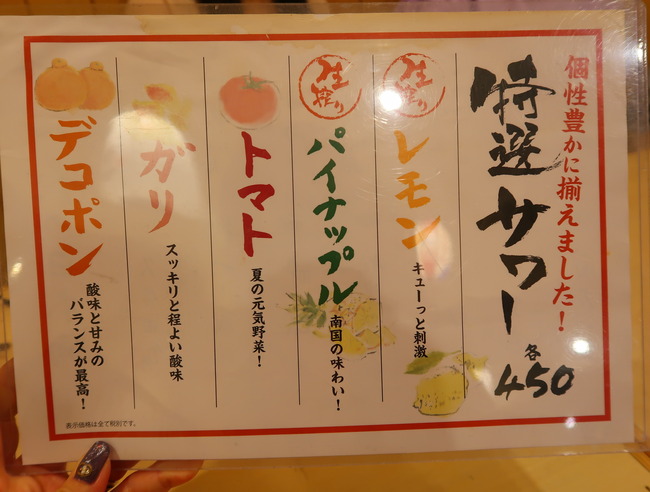 個性豊かに揃えました!
特選サワー
各
450
生搾り
レモン
キューっと刺激
生搾り
パイナップル
南国の味わい!
トマト
夏の元気野菜!
ガリ
スッキリと程よい酸味
デコポン
酸味と甘みの
バランスが最高!
表示価格は全て税別です。